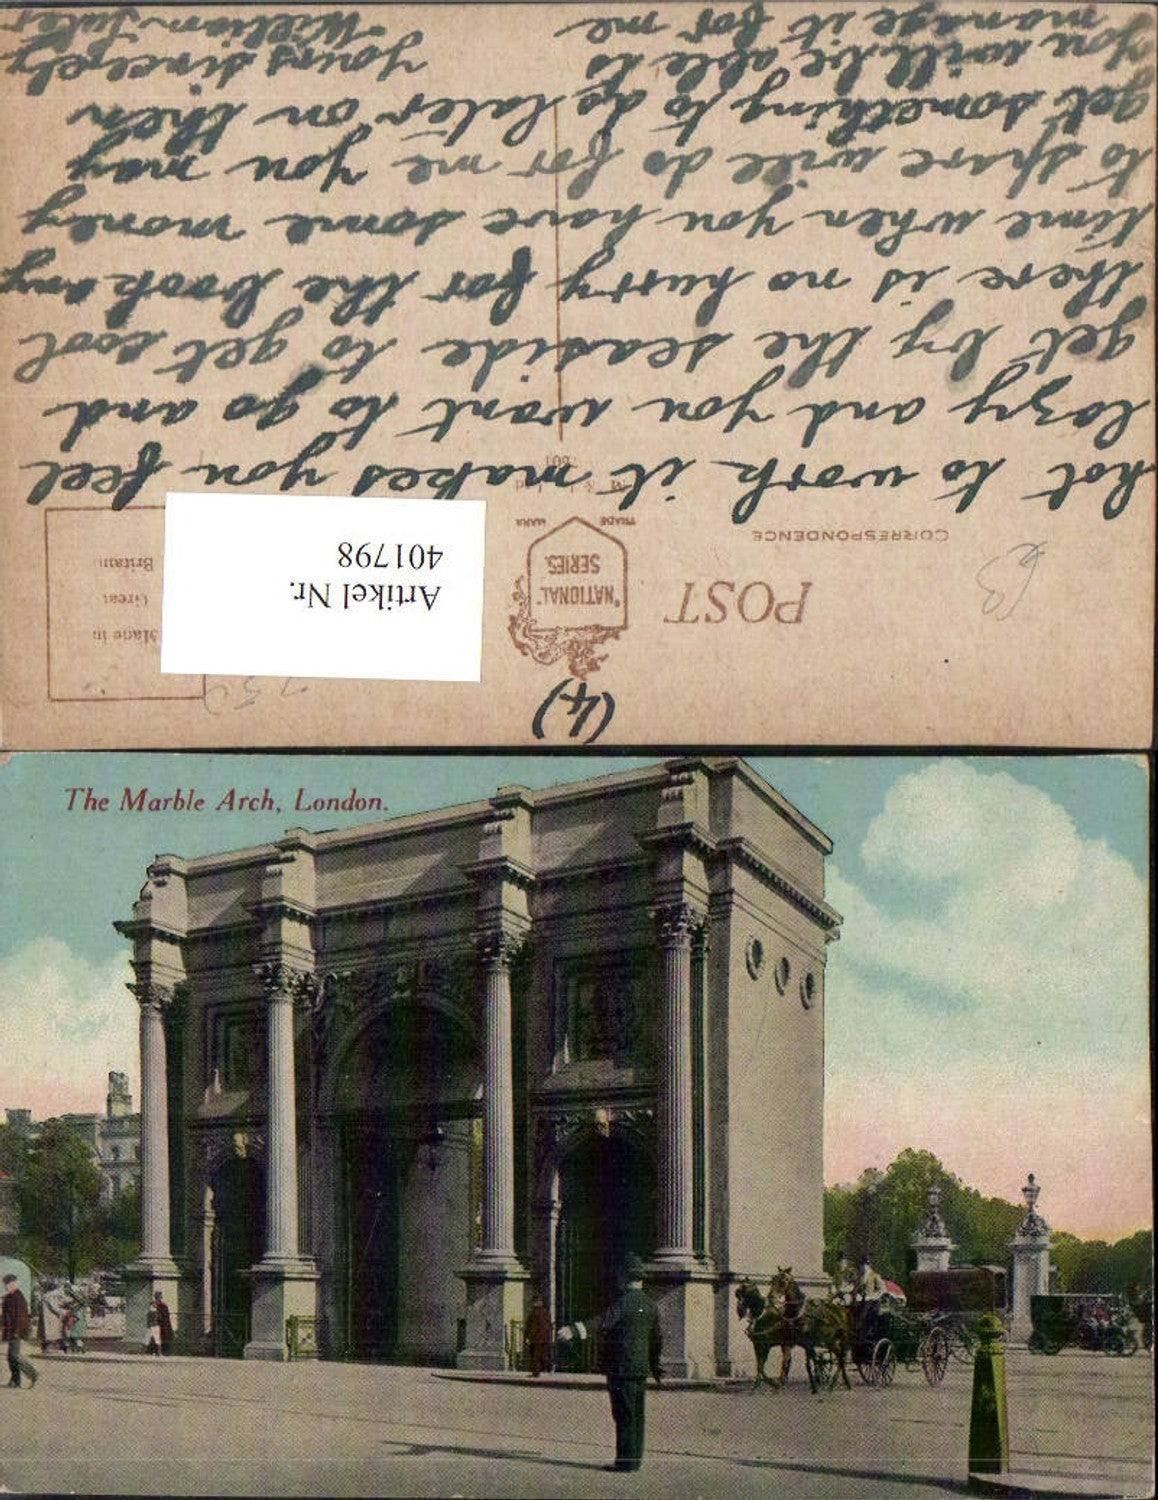 (4)
POST
"NATIONAL"
SERIES.
TRADE MARK
CORRESPONDENCE
Made in
Great
Britain
Artikel Nr.
401798
hot to work it makes you feel
lazy and you want to go and
get by the seaside to get cool
there is no hurry for the book any
time when you have some money
to spare will do for me you may
get something to do later on then
you will be able to
manage it for me
yours sincerely
William
The Marble Arch, London.